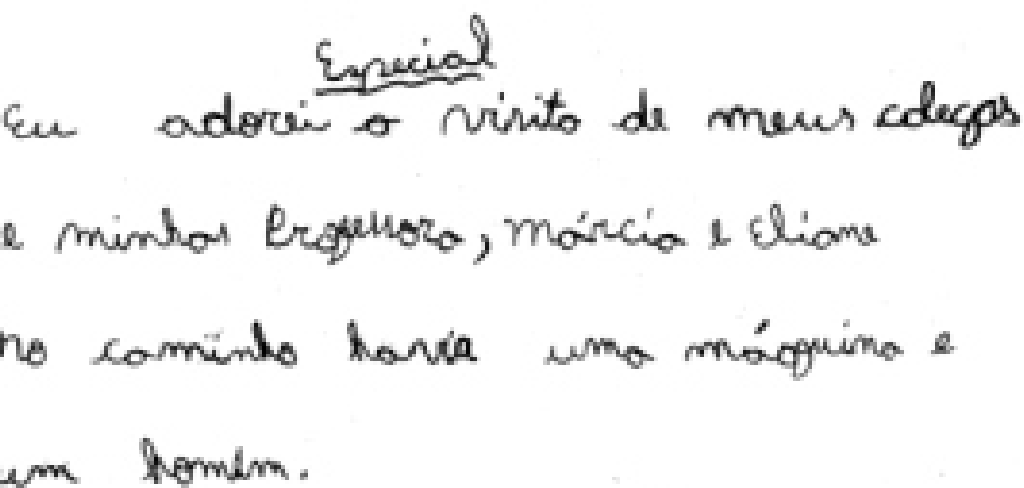 Especial
Eu adorei a visita de meus colegas
e minhas Professora, Márcia e Eliane
no caminho havia uma máquina e
um homem.